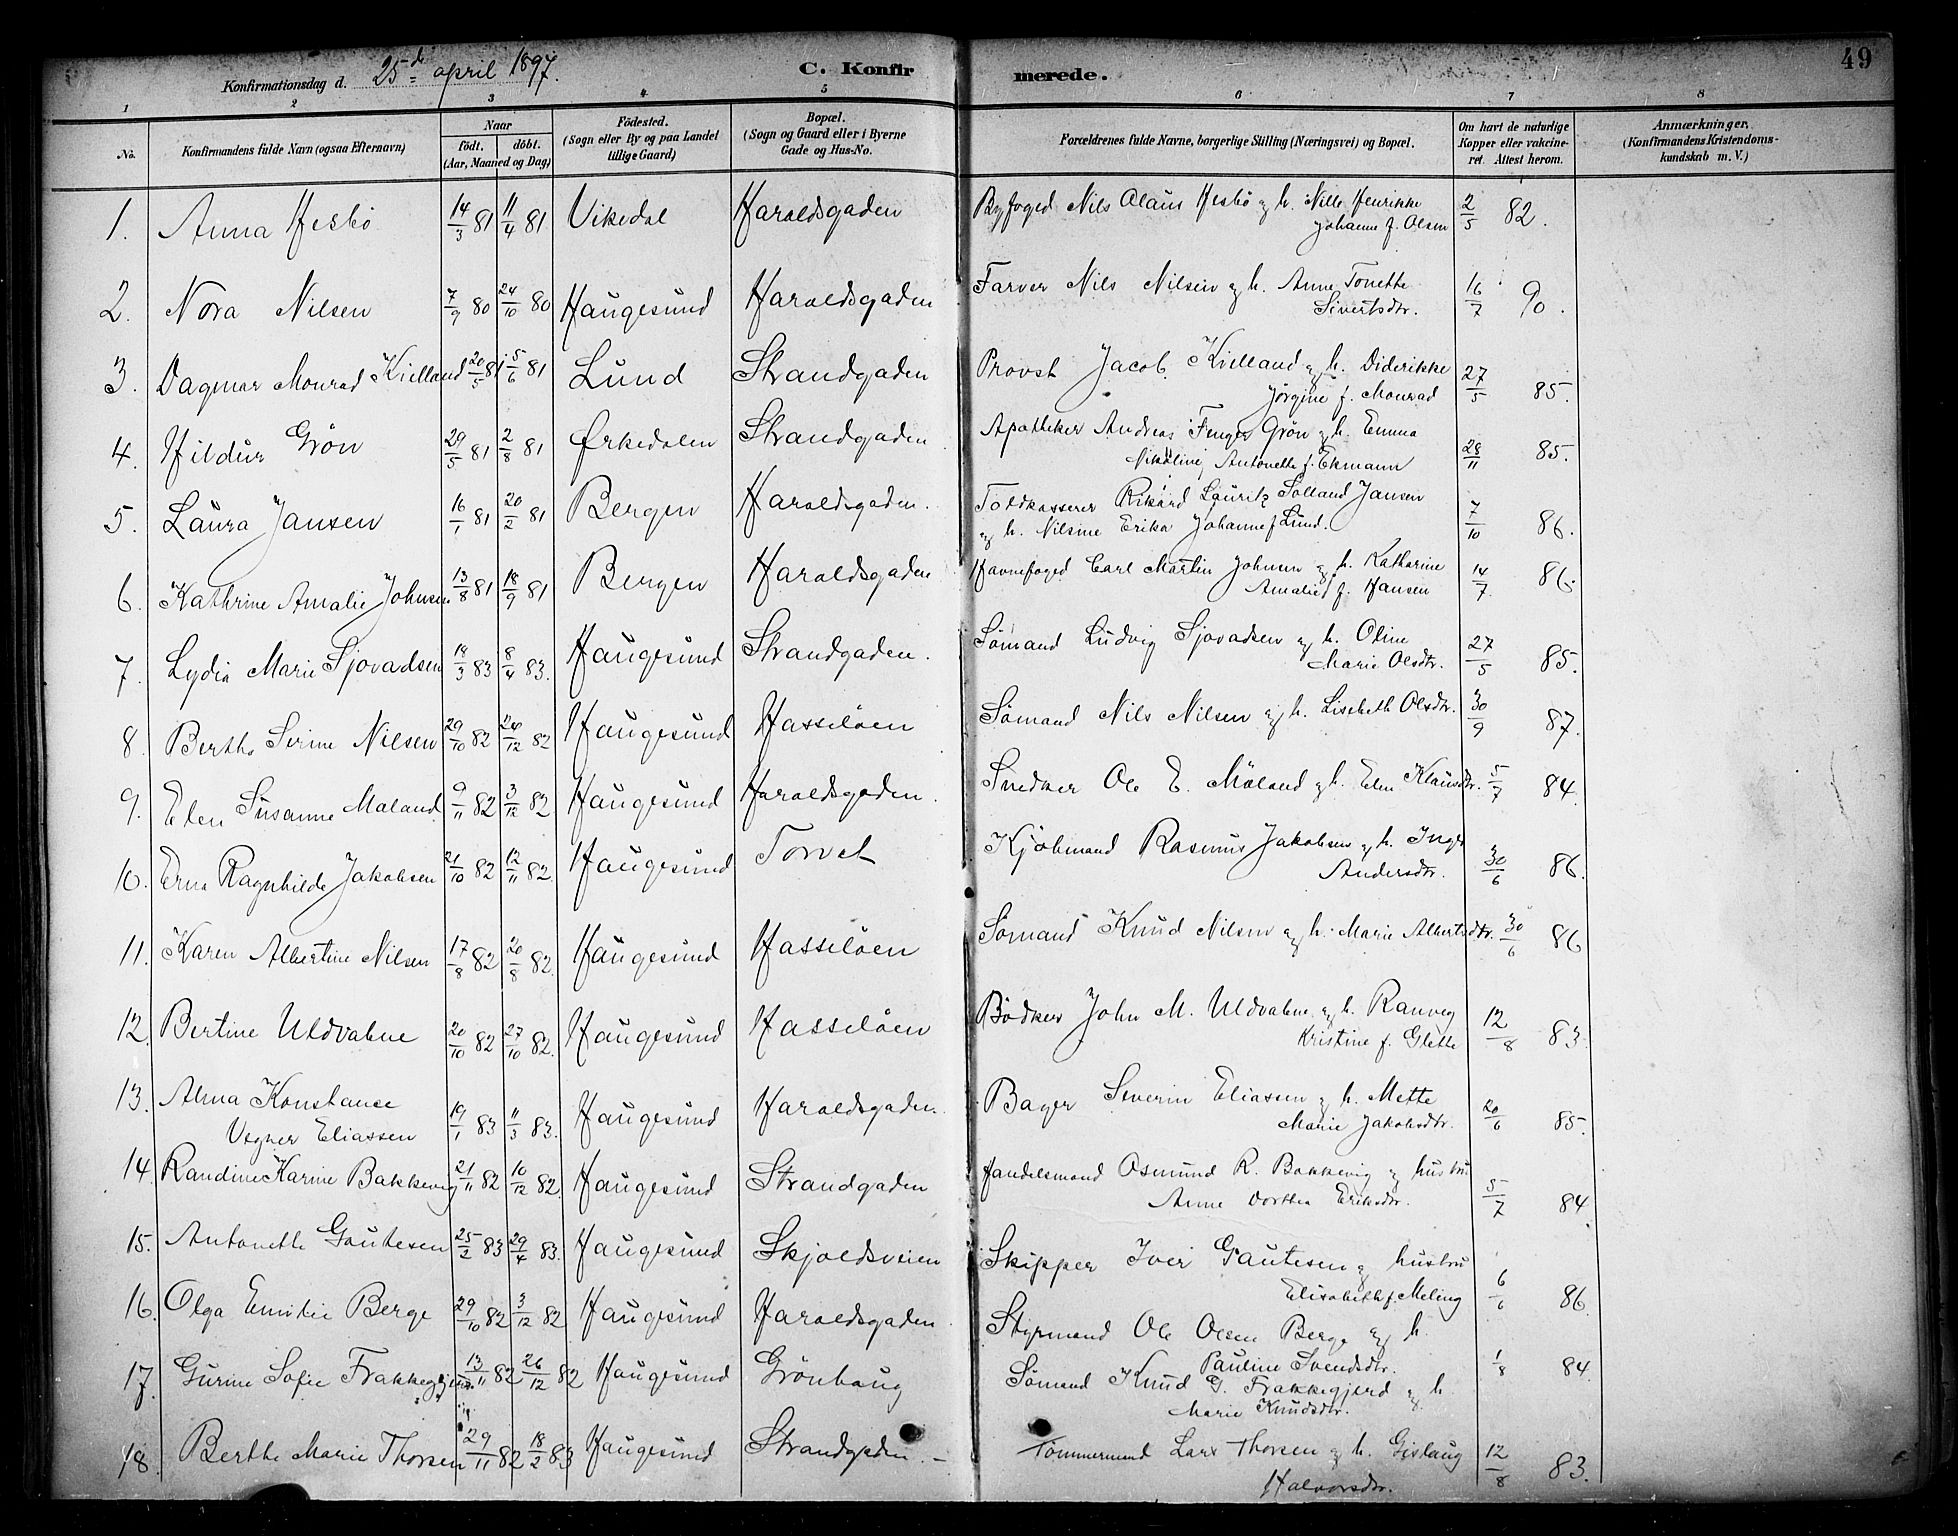 49
Konfirmationsdag d. 25de april 1897.
C. Konfirmerede.
1 2 3 4 5 6 7 8
No.
Konfirmandens fulde Navn (ogsaa Efternavn)
Naar
født. døbt.
(Aar, Maaned og Dag)
Fødested.
(Sogn eller By og paa Landet
tillige Gaard)
Bopæl.
(Sogn og Gaard eller i Byerne
Gade og Hus-No.
Forældrenes fulde Navne, borgerlige Stilling (Næringsvei) og Bopæl.
Om havt de naturlige
Kopper eller vakcine-
ret. Attest herom.
Anmærkninger.
(Konfirmandens Kristendoms-
kundskab m. V.)
1. Anna Hesbö 14/3 81 11/4 81 Vikedal Haraldsgaden Byfoged Nils Olaus Hesbö og h. Nille Henrikke 2/5 82.
Johanne f. Olsen
2. Nora Nilsen 7/9 80 24/10 80 Haugesund Haraldsgaden Farver Nils Nilsen og h. Anne Tonette 16/7 90.
Sivertsdtr.
3. Dagmar Monrad Kielland 20/5 81 5/6 81 Lund Strandgaden Provst Jacob Kielland og h. Diderikke 27/5 85.
Jørgine f. Monrad
4. Hildur Grön 29/5 81 2/8 81 Ørkedalen Strandgaden Apotheker Andreas Fenger Grön og h. Emma 28/11 85.
Nikoline Antonette f. Ekmann
5. Laura Jansen 16/1 81 20/2 81 Bergen Haraldsgaden. Toldkasserer Rikard Lauritz Solland Jansen
og h. Nilsine Erika Johanne f. Lund. 7/10 86.
6. Kathrine Amalie Johnsen 13/8 81 18/9 81 Bergen Haraldsgaden Havnefoged Carl Martin Johnsen og h. Katharine 14/7. 86.
Amalie f. Hansen
7. Lydia Marie Sjovadsen 18/3 83 8/4 83. Haugesund Strandgaden. Sömand Ludvig Sjovadsen og h. Oline 27/5 85.
Marie Olsdtr.
8. Berthe Serine Nilsen 29/10 82 26/12 82 Haugesund Hasselöen Sömand Nils Nilsen og h. Lisebeth Olsdtr. 30/9 87.
9. Elen Susanne Maland 9/11 82 3/12 82. Haugesund Haraldsgaden. Snedker Ole E. Måland og h. Elen Klausdtr. 5/7 84.
10. Erna Ragnhilde Jakobsen 21/10 82 12/11 82. Haugesund Torvet Kjöbmand Rasmus Jakobsen og h. Inger 30/6 86.
Andersdtr.
11. Karen Albertine Nilsen 17/8 82 20/8 82. Haugesund Hasselöen Sömand Knud Nilsen og h. Marie Albertsdtr. 30/6 86
12. Bertine Uldvabne 20/10 82 27/10 82. Haugesund Hasselöen Bödker John M. Uldvabne og h. Ranveig 12/8 83.
Kristine f. Glette
13. Alma Konstance
Vegner Eliassen 19/1 83 11/3 83. Haugesund Haraldsgaden. Bager Severin Eliassen og h. Mette 20/6 85.
Marie Jakobsdtr.
14. Randine Karine Bakkevig 21/11 82 10/12 82. Haugesund Strandgaden Handelsmand Osmund R. Bakkevig og hustru
Anne Dorthea Eriksdtr. 5/7 84.
15. Antonette Gautesen 25/2 83 29/4 83. Haugesund Skjoldsveien Skipper Iver Gautesen og hustru
Elisabeth f. Meling 6/6 86.
16. Olga Emilie Berge 29/10 82 3/12 82 Haugesund Haraldsgaden. Styrmand Ole Olsen Berge og h.
Pauline Svendsdtr. 1/8 84.
17. Gurine Sofie Frakkegjerd 13/11 82 26/12 82 Haugesund Grönhaug Sömand Knud G. Frakkegjerd og h.
Marie Knudsdtr.
18. Berthe Marie Thorsen 29/11 82 18/2 83 Haugesund Strandgaden. Tømmermand Lars Thorsen og h. Gislaug 12/8 83.
Halvorsdtr.